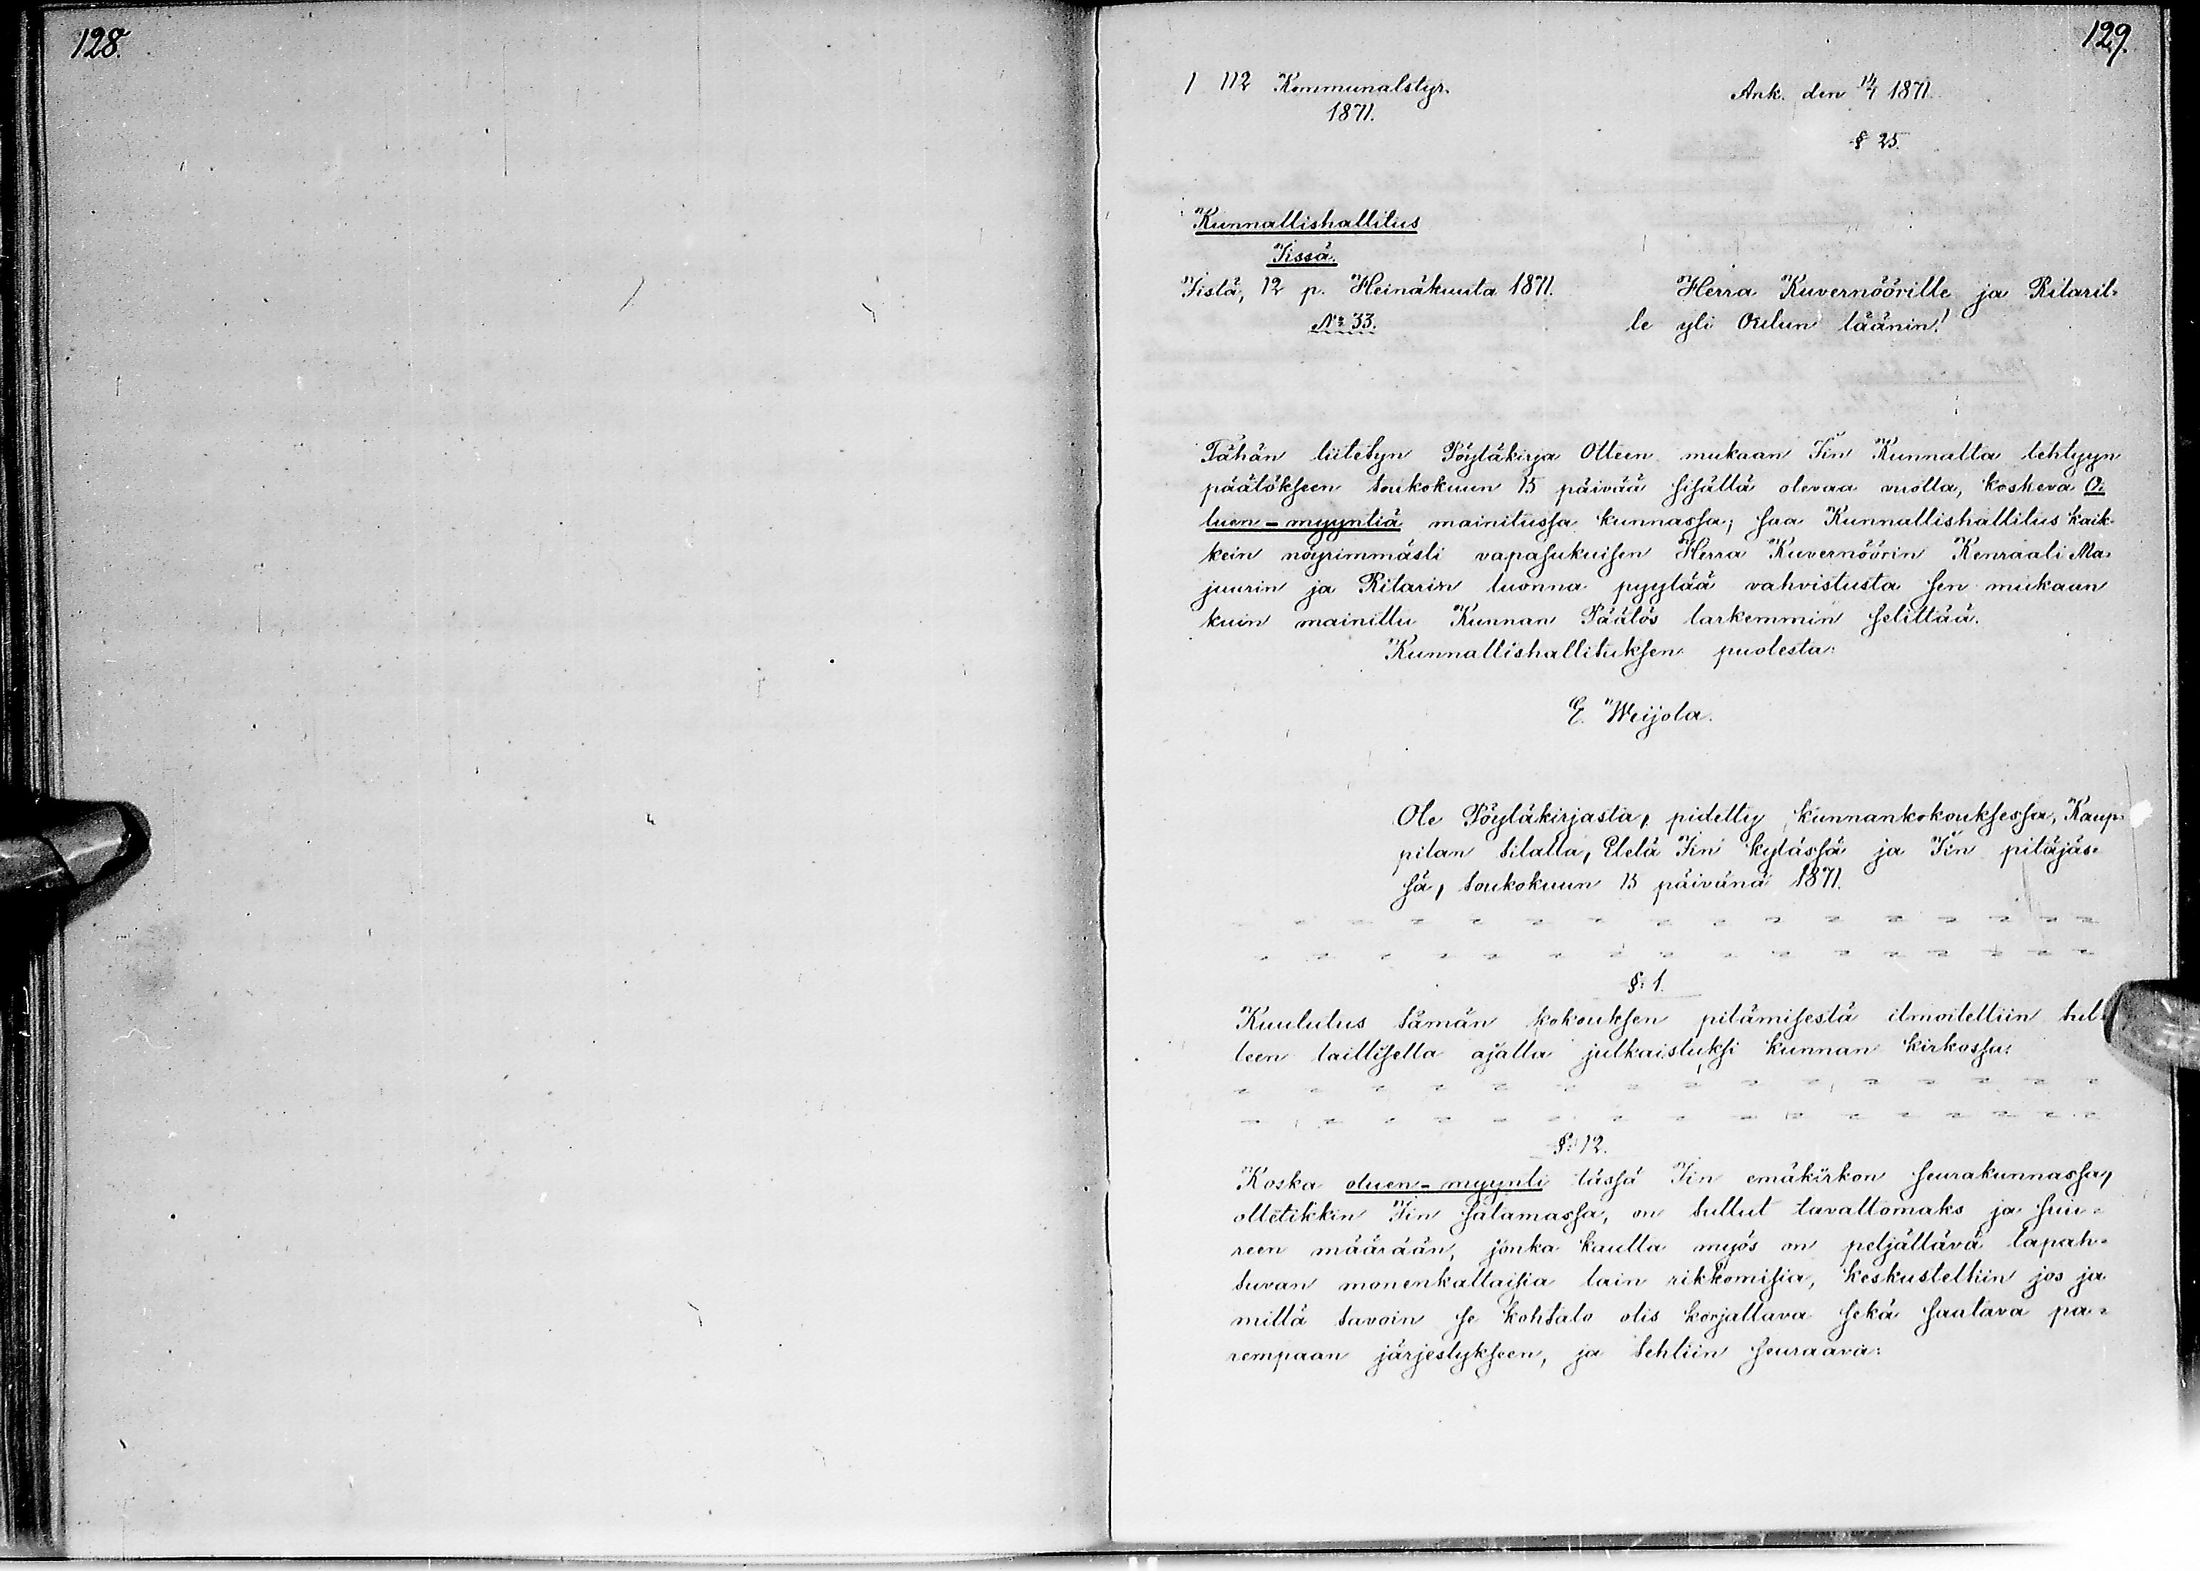 128.
129.
1 112 Kommunalstyr.
1871.
Ank. den 14/7 1871.
§ 25.
Kunnallishallitus
Iissä.
Iistä, 12 p. Heinäkuuta 1871.
№ 33.
Herra Kuvernöörille ja Ritaril-
le yli Oulun läänin!
Tähän liitetyn Pöytäkirja Otteen mukaan Iin Kunnalta tehtyyn
päätökseen toukokuun 15 päivää sisällä olevaa vuotta, koskeva O-
luen-myyntiä mainitussa kunnassa; saa Kunnallishallitus kaik-
kein nöyrimmästi vapasukuisen Herra Kuvernöörin Kenraali Ma-
juurin ja Ritarin luonna pyytää vahvistusta sen mukaan
kuin mainittu Kunnan Päätös tarkemmin selittää.
Kunnallishallituksen puolesta:
E. Weijola.
Ote Pöytäkirjasta, pidetty kunnankokouksessa, Kaup-
pilan tilalla, Etelä Iin kylässä ja Iin pitäjäs-
sä, toukokuun 15 päivänä 1871.
§: 1.
Kuulutus tämän kokouksen pitämisestä ilmoitettiin tul-
leen laillisella ajalla julkaistuksi kunnan kirkossa:
§: 12.
Koska oluen-myynti tässä Iin emäkirkon seurakunnassa,
ollětikkin Iin satamassa, on tullut tavattomaks ja suu-
reen määrään, jonka kautta myös on peljättävä tapah-
tuvan monenkaltaisia lain rikkomisia, keskusteltiin jos ja
millä tavoin se kohtalo olis korjattava sekä saatava pa-
rempaan järjestykseen, ja tehtiin seuraava: